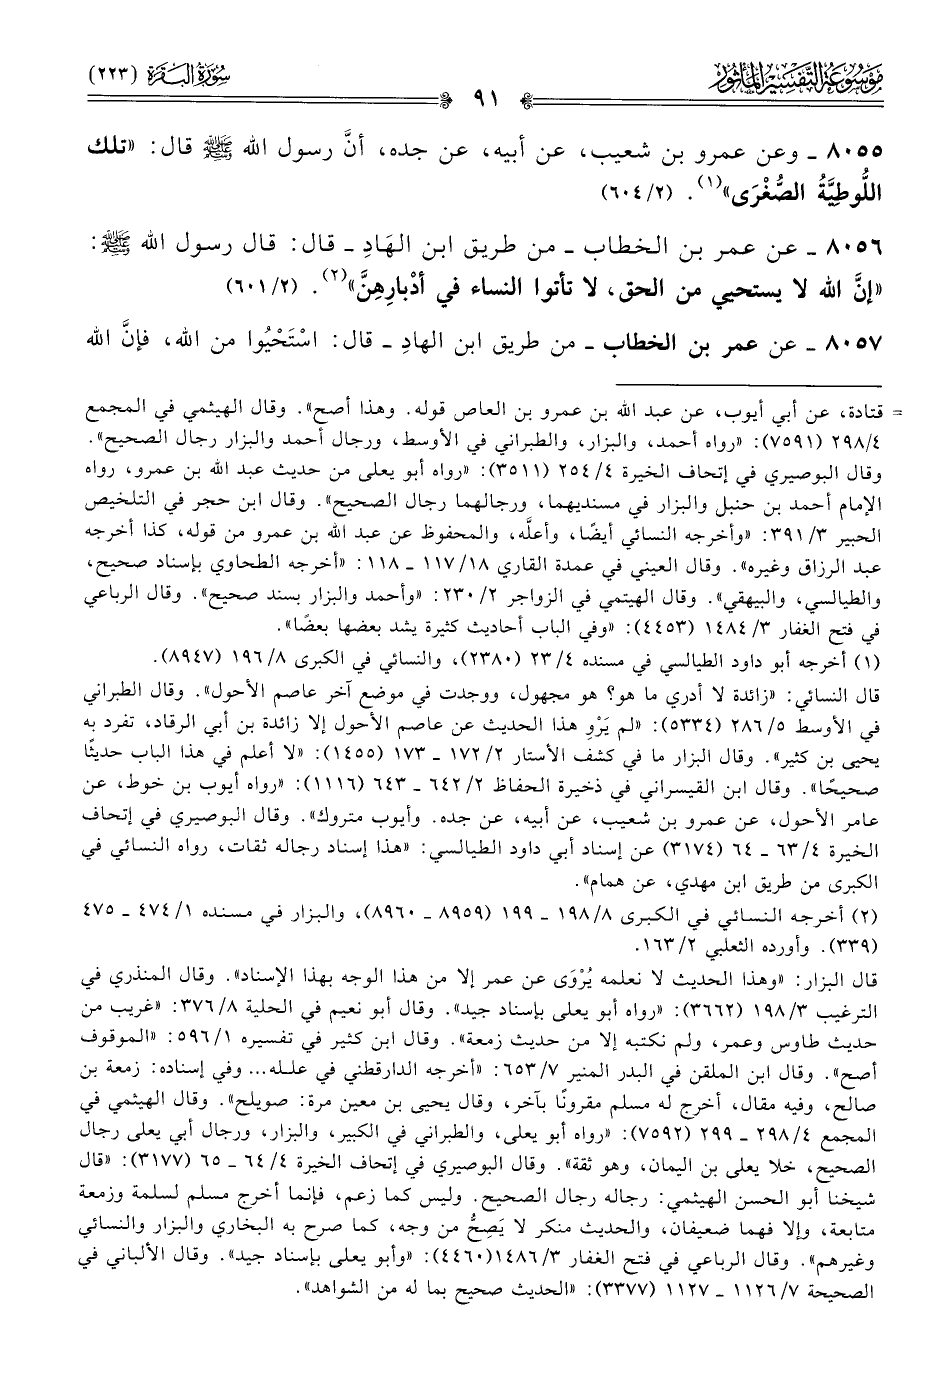 مَوْسُوعَةُ التَّفْسِيرِ المَأْثُورِ
سُورَةُ البَقَرَةِ (٢٢٣)
٩١
٨٠٥٥ ـ وعن عمرو بن شعيب، عن أبيه، عن جده، أنَّ رسول الله ﷺ قال: «تلك
اللُّوطِيَّةُ الصُّغْرَى»(١). (٢/ ٦٠٤)
٨٠٥٦ ـ عن عمر بن الخطاب ـ من طريق ابن الهَادِ ـ قال: قال رسول الله ﷺ:
«إنَّ الله لا يستحيي من الحق، لا تأتوا النساء في أدْبارِهِنَّ»(٢). (٢/ ٦٠١)
٨٠٥٧ ـ عن عمر بن الخطاب ـ من طريق ابن الهادِ ـ قال: اسْتَحْيُوا من الله، فإنَّ الله
= قتادة، عن أبي أيوب، عن عبد الله بن عمرو بن العاص قوله. وهذا أصح». وقال الهيثمي في المجمع
٤/ ٢٩٨ (٧٥٩١): «رواه أحمد، والبزار، والطبراني في الأوسط، ورجال أحمد والبزار رجال الصحيح».
وقال البوصيري في إتحاف الخيرة ٤/ ٢٥٤ (٣٥١١): «رواه أبو يعلى من حديث عبد الله بن عمرو، رواه
الإمام أحمد بن حنبل والبزار في مسنديهما، ورجالهما رجال الصحيح». وقال ابن حجر في التلخيص
الحبير ٣/ ٣٩١: «وأخرجه النسائي أيضًا، وأعلَّه، والمحفوظ عن عبد الله بن عمرو من قوله، كذا أخرجه
عبد الرزاق وغيره». وقال العيني في عمدة القاري ١٨/ ١١٧ ـ ١١٨: «أخرجه الطحاوي بإسناد صحيح،
والطيالسي، والبيهقي». وقال الهيتمي في الزواجر ٢/ ٢٣٠: «وأحمد والبزار بسند صحيح». وقال الرباعي
في فتح الغفار ٣/ ١٤٨٤ (٤٤٥٣): «وفي الباب أحاديث كثيرة يشد بعضها بعضًا».
(١) أخرجه أبو داود الطيالسي في مسنده ٤/ ٢٣ (٢٣٨٠)، والنسائي في الكبرى ٨/ ١٩٦ (٨٩٤٧).
قال النسائي: «زائدة لا أدري ما هو؟ هو مجهول، ووجدت في موضع آخر عاصم الأحول». وقال الطبراني
في الأوسط ٥/ ٢٨٦ (٥٣٣٤): «لم يَرْوِ هذا الحديث عن عاصم الأحول إلا زائدة بن أبي الرقاد، تفرد به
يحيى بن كثير». وقال البزار ما في كشف الأستار ٢/ ١٧٢ ـ ١٧٣ (١٤٥٥): «لا أعلم في هذا الباب حديثًا
صحيحًا». وقال ابن القيسراني في ذخيرة الحفاظ ٢/ ٦٤٢ ـ ٦٤٣ (١١١٦): «رواه أيوب بن خوط، عن
عامر الأحول، عن عمرو بن شعيب، عن أبيه، عن جده. وأيوب متروك». وقال البوصيري في إتحاف
الخيرة ٤/ ٦٣ ـ ٦٤ (٣١٧٤) عن إسناد أبي داود الطيالسي: «هذا إسناد رجاله ثقات، رواه النسائي في
الكبرى من طريق ابن مهدي، عن همام».
(٢) أخرجه النسائي في الكبرى ٨/ ١٩٨ ـ ١٩٩ (٨٩٥٩ ـ ٨٩٦٠)، والبزار في مسنده ١/ ٤٧٤ ـ ٤٧٥
(٣٣٩). وأورده الثعلبي ٢/ ١٦٣.
قال البزار: «وهذا الحديث لا نعلمه يُرْوَى عن عمر إلا من هذا الوجه بهذا الإسناد». وقال المنذري في
الترغيب ٣/ ١٩٨ (٣٦٦٢): «رواه أبو يعلى بإسناد جيد». وقال أبو نعيم في الحلية ٨/ ٣٧٦: «غريب من
حديث طاوس وعمر، ولم نكتبه إلا من حديث زمعة». وقال ابن كثير في تفسيره ١/ ٥٩٦: «الموقوف
أصح». وقال ابن الملقن في البدر المنير ٧/ ٦٥٣: «أخرجه الدارقطني في علله... وفي إسناده: زمعة بن
صالح، وفيه مقال، أخرج له مسلم مقرونًا بآخر، وقال يحيى بن معين مرة: صويلح». وقال الهيثمي في
المجمع ٤/ ٢٩٨ ـ ٢٩٩ (٧٥٩٢): «رواه أبو يعلى، والطبراني في الكبير، والبزار، ورجال أبي يعلى رجال
الصحيح، خلا يعلى بن اليمان، وهو ثقة». وقال البوصيري في إتحاف الخيرة ٤/ ٦٤ ـ ٦٥ (٣١٧٧): «قال
شيخنا أبو الحسن الهيثمي: رجاله رجال الصحيح. وليس كما زعم، فإنما أخرج مسلم لسلمة وزمعة
متابعة، وإلا فهما ضعيفان، والحديث منكر لا يَصِحُّ من وجه، كما صرح به البخاري والبزار والنسائي
وغيرهم». وقال الرباعي في فتح الغفار ٣/ ١٤٨٦(٤٤٦٠): «وأبو يعلى بإسناد جيد». وقال الألباني في
الصحيحة ٧/ ١١٢٦ ـ ١١٢٧ (٣٣٧٧): «الحديث صحيح بما له من الشواهد».